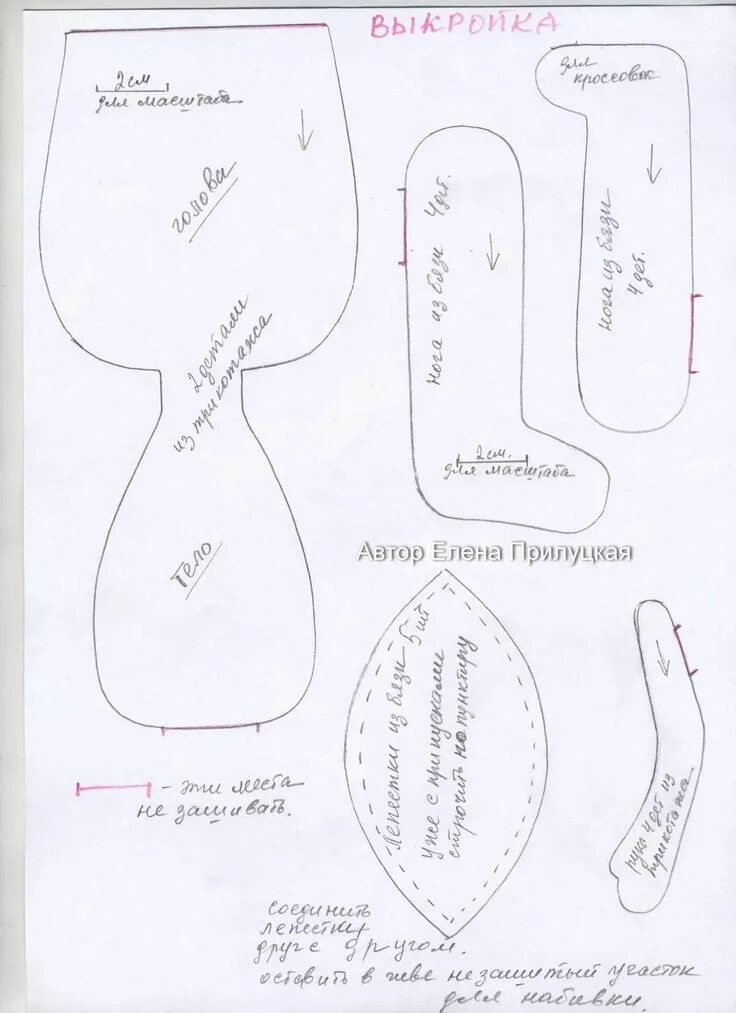 ВЫКРОЙКА
2см
для масштаба
голова
2 детали
из трикотажа
тело
нога из бязи 4 дет.
2 см.
для масштаба
для
кроссовок
нога из бязи
4 дет.
Автор Елена Прилуцкая
Лепестки из бязи 5 шт
уже с припусками
строчить по пунктиру
рука 4 дет из
трикотажа
- эти места
не зашивать.
соединить
лепестки
друг с другом.
оставить в шве незашитый участок
для набивки.